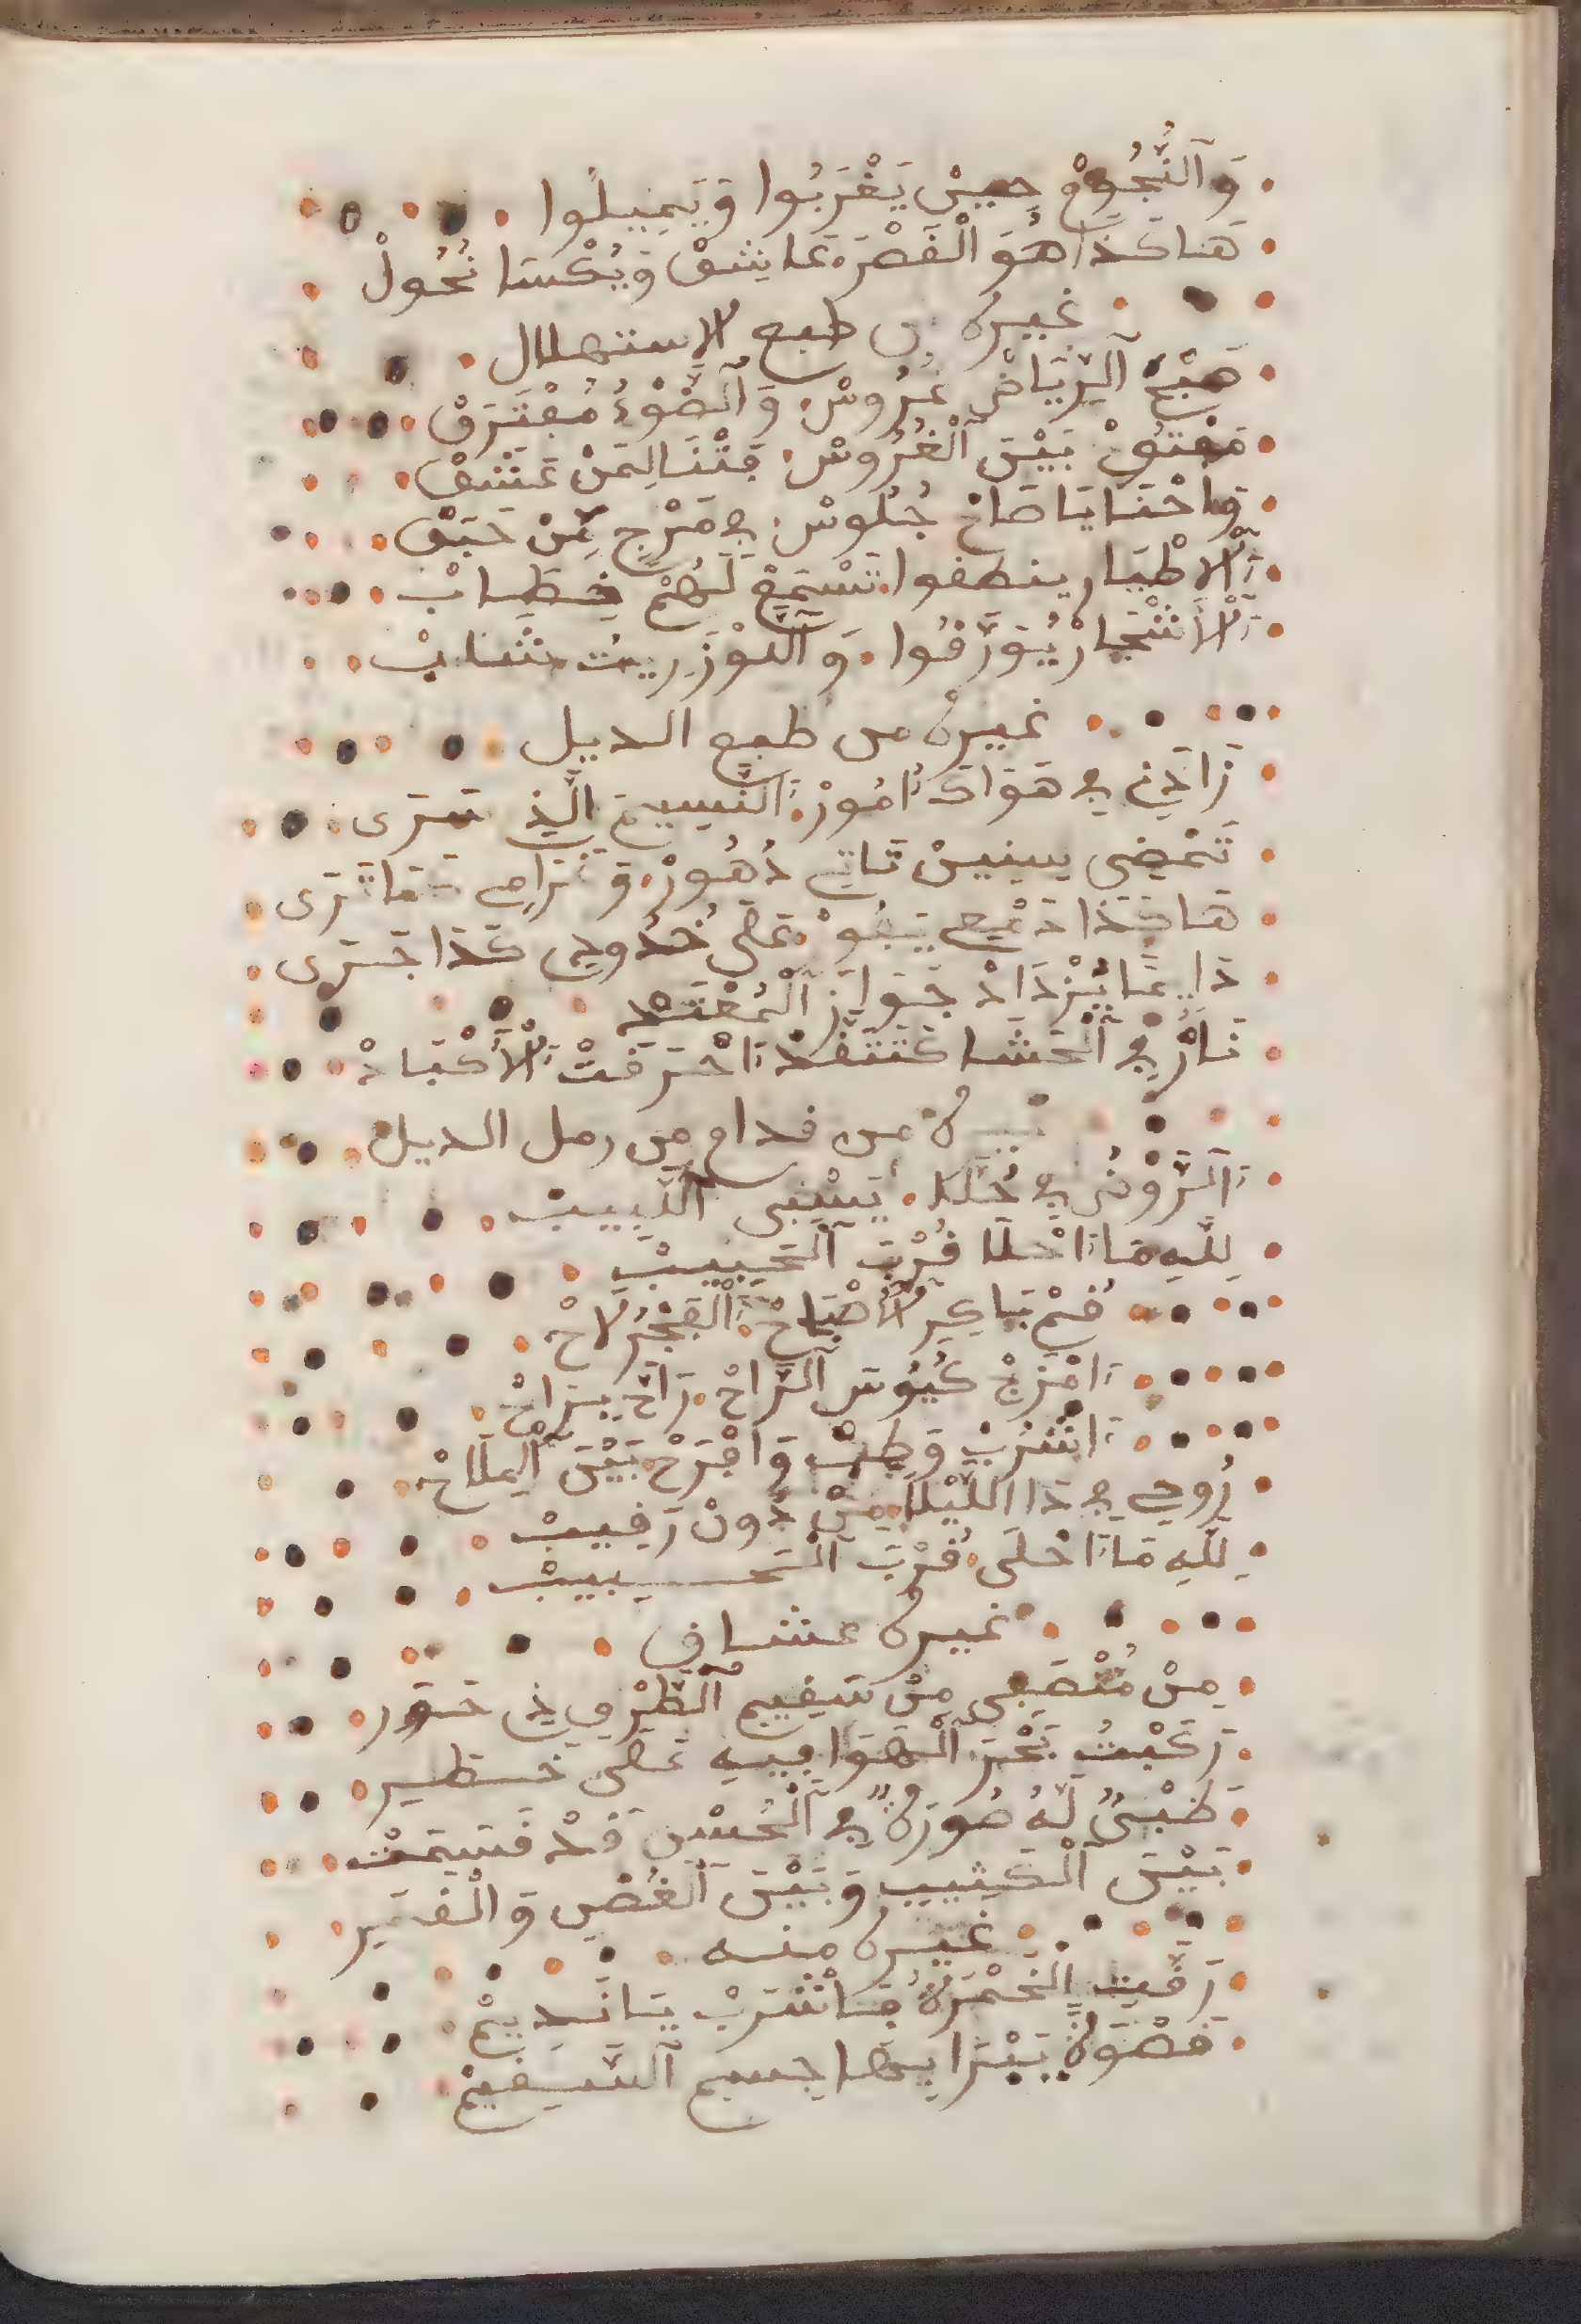 وَٱلنُّجُومْ حِيِينْ يَغْرَبُوا وَيَمِيلُوا
هَاكَذَا هُوَ الْقَصْرَ عَاشِقْ وَيُكْسَا نُحُولْ
غيره من طبع الاستهلال
ٱلرِّيَاضْ عَرُوسْ وَٱلضَّوْءُ مُفْتَرَقْ
بَيْنَ ٱلْغُرُوسْ فِتْنَا لِمَنْ عَشَقْ
وَاحْنَا يَا صَاحْ جُلُوسْ فِي مَرْجٍ مِّنْ حَبَقْ
ٱلْاطْيَار ينطقوا تَسْمَعْ لَهُمْ خِطَابْ
ٱلْأَشْجَارْ يُوَرَّقُوا وَٱللَّوْزْ رِيتُ شَابْ
غيره من طبع الديل
زَادَنِي فِي هَوَاكَ امُورْ النَّسِيمَ الَّذِي سَرَى
تَمْضِي سِنِينْ تَاتِي دُهُورْ وَغَرَامِي كَمَا تَرَى
هَاكَذَا دَمْعِي يَفُورْ عَلَى خُدُودِي كَذَا جَرَى
دَايِمًا يَزْدَادْ جَوَازْ ٱلْمُعْتَمَدْ
نَارٌ فِي ٱلْحَشَا كَتَتَّقَدْ احْرَقَتْ ٱلْأَكْبَادْ
غيره من قدام من رمل الديل
ٱلرَّوْضُ فِي حُلَلَا يَسْبِي ٱللَّبِيبْ
لِلَّهِ مَا احْلَا قُرْبَ ٱلْحَبِيبْ
قُمْ بَاكِرِ ٱلْأَصْبَاحْ ٱلْفَجْرُ لَاحْ
امْزَجْ كُيُوسَ ٱلرَّاحْ رَاحْ بِرَاحْ
اشْرَبْ وَطِبْ وَافْرَحْ بَيْنَ ٱلْمِلَاحْ
رُوحِي فِي ذَا اللَّيْلَا مِنْ دُونْ رَقِيبْ
لِلَّهِ مَا احْلَى قُرْبَ ٱلْحَبِيبْ
غيره عشاق
مِنْ مُنْصِفِي مِنْ سَقِيمِ ٱلطَّرْفِ ذِي حَوَرِ
رَكَبْتُ بَحْرَ ٱلْهَوَا فِيهِ عَلَى خَطَرِ
ظَبْيٌ لَهُ صُورَةٌ فِي ٱلْحُسْنِ قَدْ قُسِمَتْ
بَيْنَ ٱلْكَثِيبِ وَبَيْنَ ٱلْغُصْنِ وَالْقَمَرِ
غيره منه
رَقَّتِ الْخَمْرَةُ فَاشْرَبْ يَانَدِيمْ
قَهْوَةٌ يَبْرَا بِهَا جِسم ٱلسَّقِيمْ